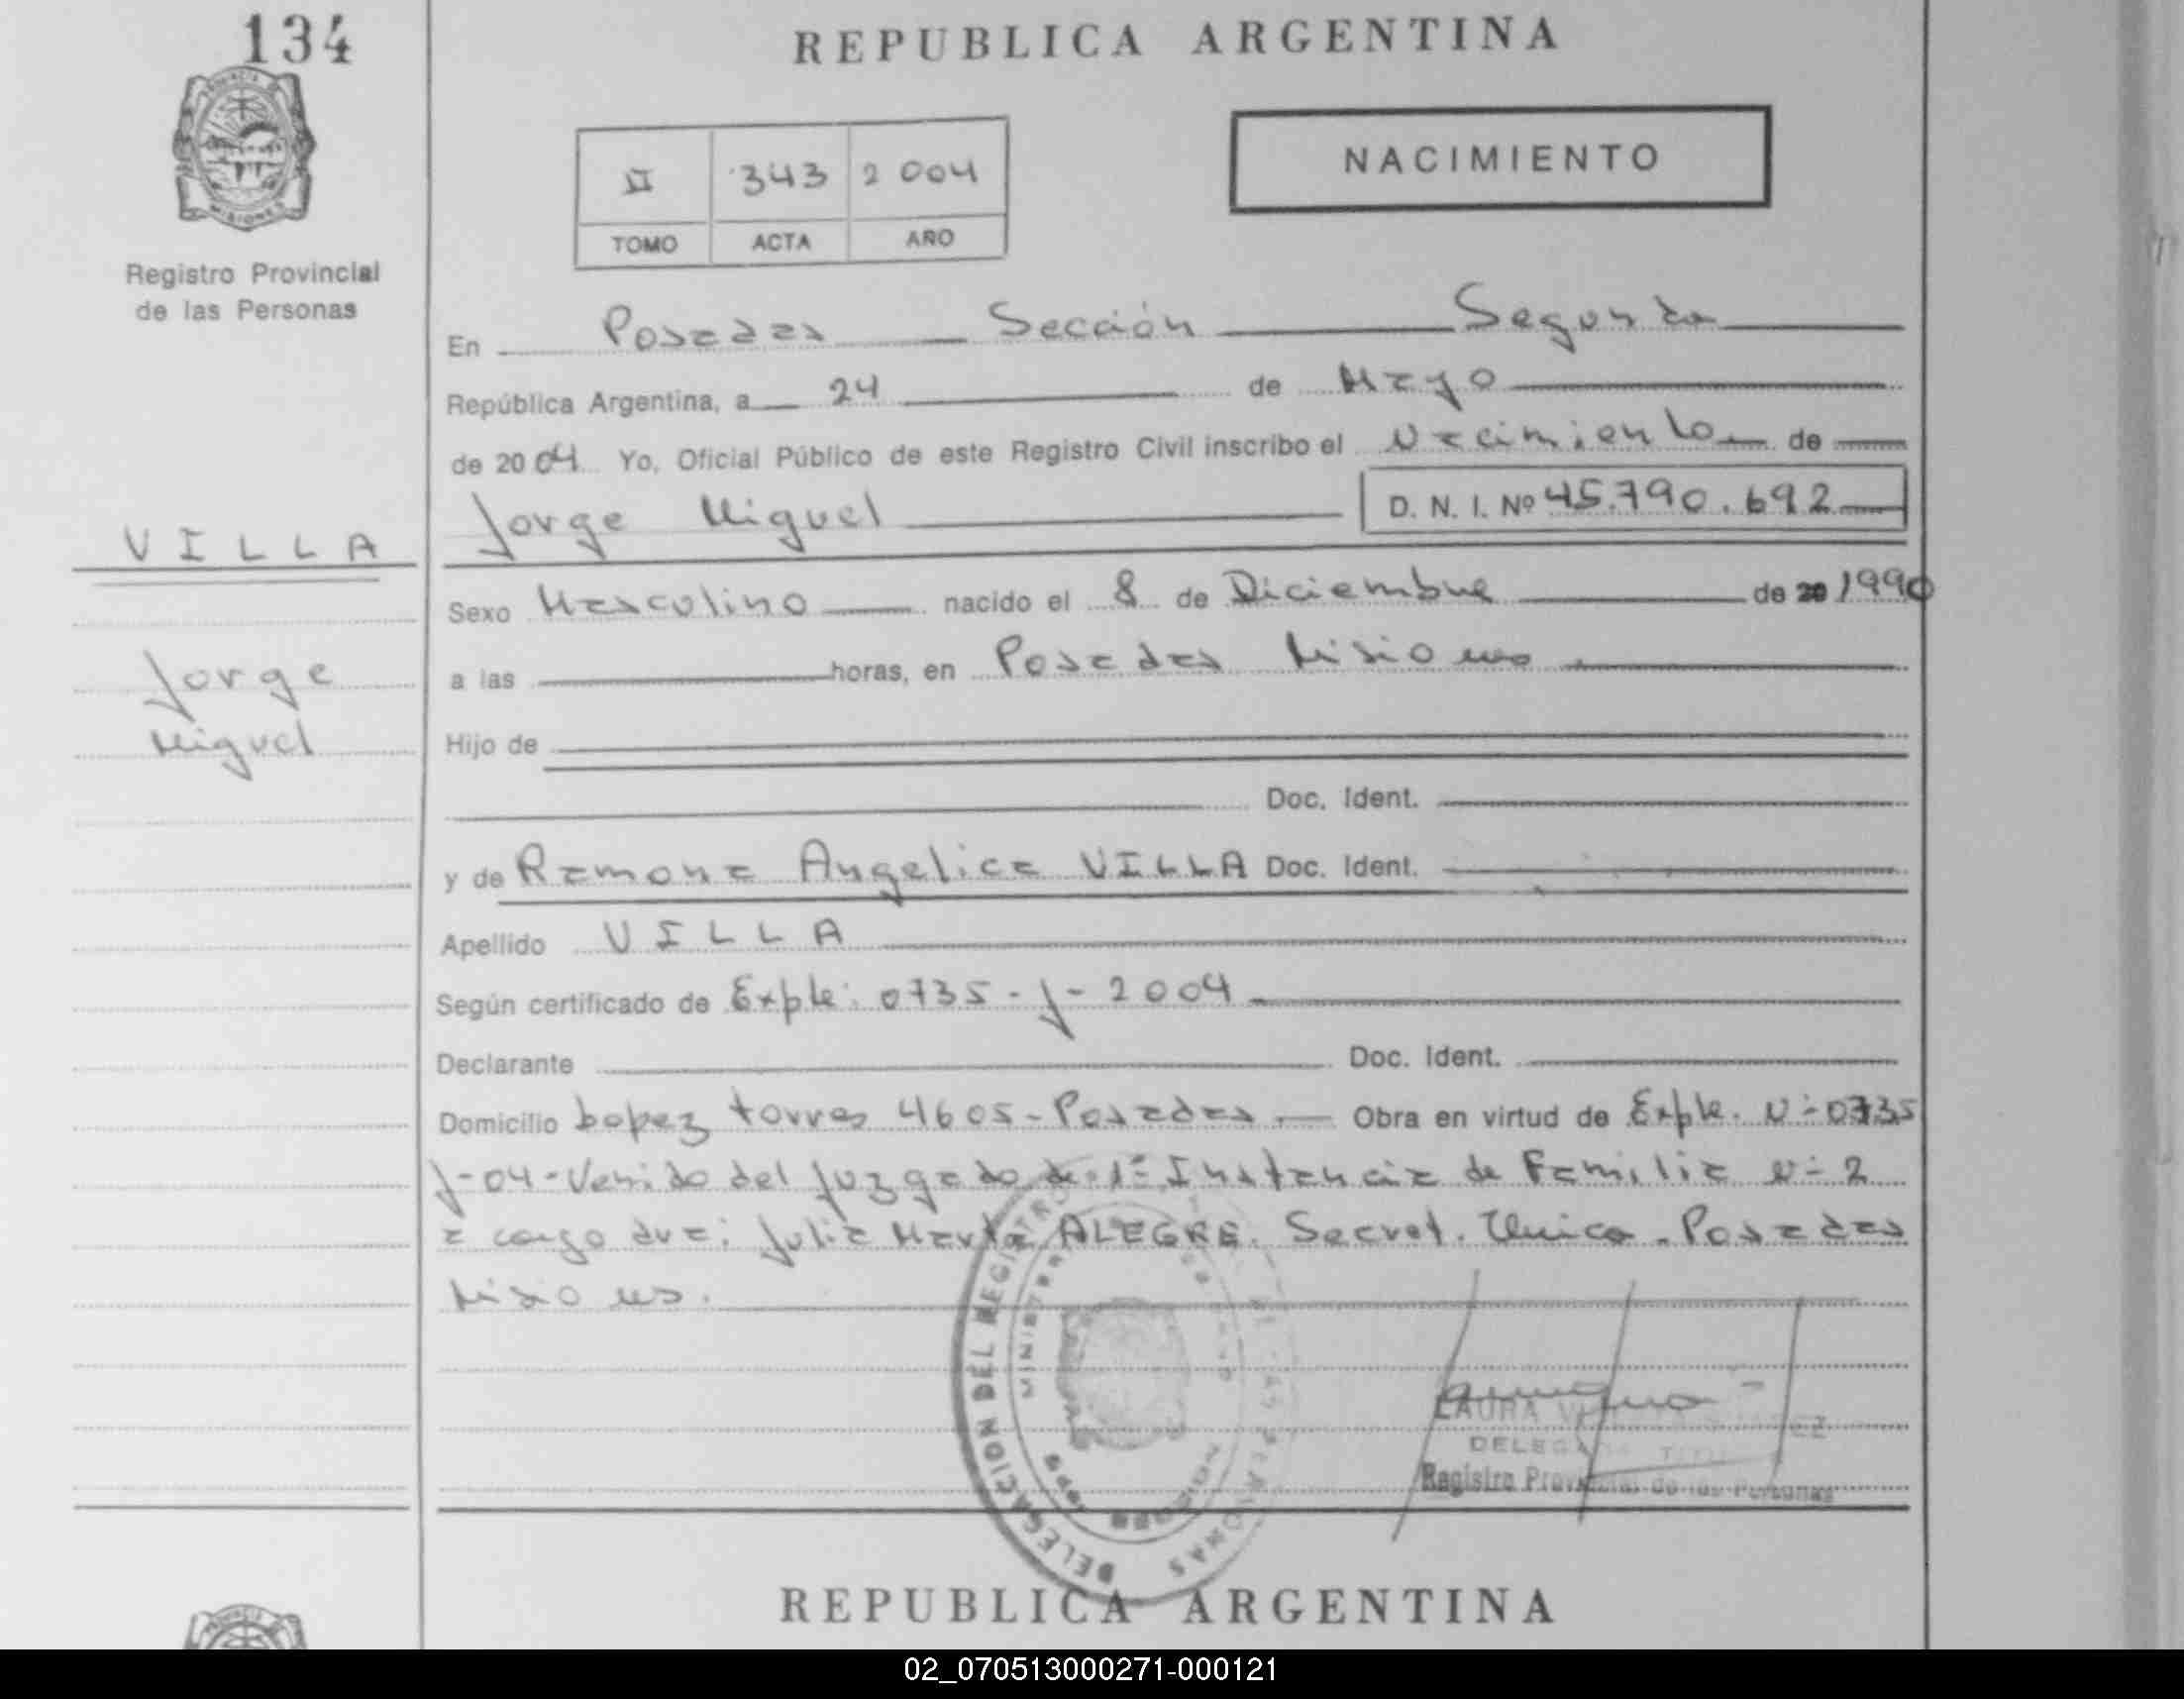 134
REPUBLICA ARGENTINA
NACIMIENTO
II 343 2004
TOMO ACTA AÑO
Registro Provincial
de las Personas
En Posadas Sección Segunda
República Argentina, a 24 de Mayo
de 2004 Yo, Oficial Público de este Registro Civil inscribo el Nacimiento de
Jorge Miguel D. N. I. Nº 45.790.692
VILLA
Sexo Masculino nacido el 8 de Diciembre de 20 1990
Jorge
a las horas, en Posadas Misiones
Miguel
Hijo de
Doc. Ident.
y de Ramona Angelica VILLA Doc. Ident.
Apellido VILLA
Según certificado de Expte: 0735-J-2004
Declarante Doc. Ident.
Domicilio Lopez torres 4605-Posadas.- Obra en virtud de Expte. Nº 0735
J-04-Venido del Juzgado de 1º Instancia de Familia Nº 2
a cargo dra: Julia Marta ALEGRE. Secret. Unica. Posadas
Misiones.
DELEGACION DEL REGISTRO
LAURA
DELEGADA
Registro Provincial de las Personas
REPUBLICA ARGENTINA
02_070513000271-000121